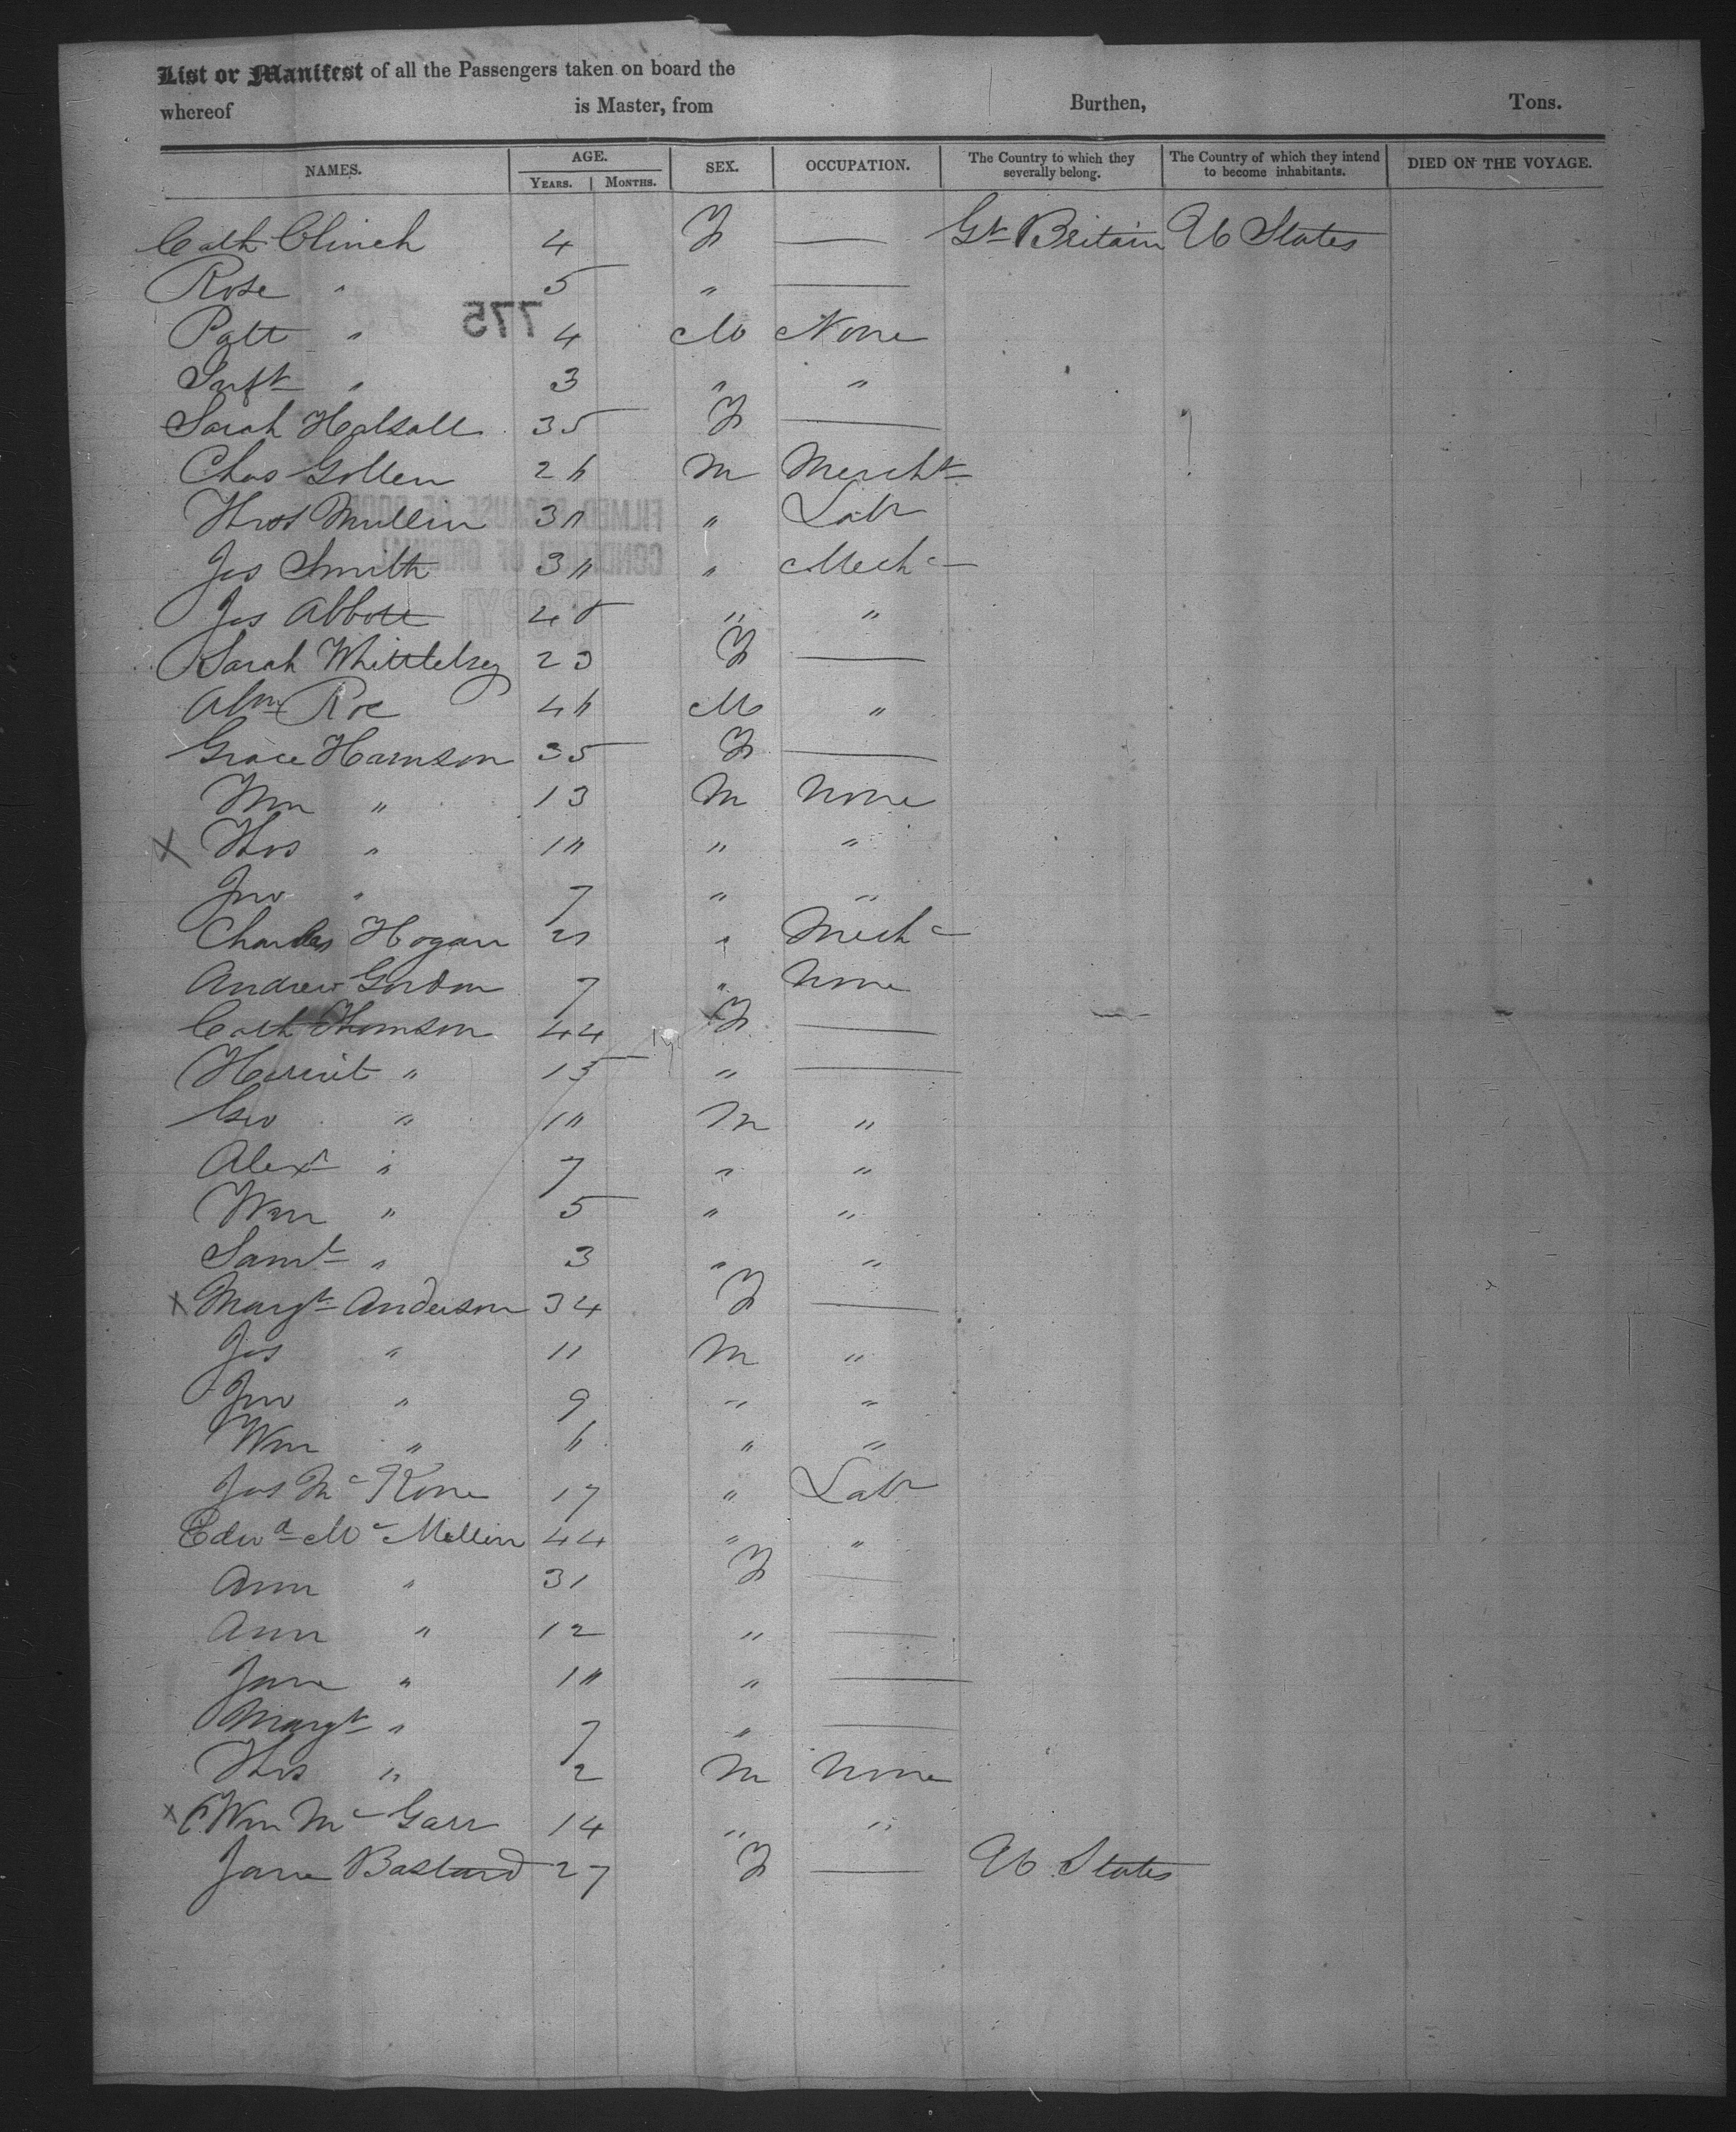 List or Manifest of all the Passengers taken on board the
whereof is Master, from Burthen, Tons.
NAMES. AGE. SEX. OCCUPATION. The Country to which they severally belong. The Country of which they intend to become inhabitants. DIED ON THE VOYAGE.
YEARS. MONTHS.
Cath Clinch 4 F — Gt Britain U States
Rose " 5 " —
775
Patt " 4 M None
" 3 " "
Sarah Halsall 35 F —
Chas Gollen 26 M Mercht
Thos Mullin 30 " Labr
FILMED BECAUSE OF POOR
CONDITION OF ORIGINAL
Jas Smith 30 " Mechc
[COPY]
Jas Abbott 48 " "
Sarah Whittlesey 23 F —
Abm Roe 46 M "
Grace Harrison 35 F —
Wm " 13 M None
X Thos " 10 " "
Jno " 7 " "
Charles Hogan 21 " Mechc
Andrew Gordon 7 " None
Cath Thomson 44 F —
Harriet " 15 " —
Geo " 10 M "
Alexr " 7 " "
Wm " 5 " "
Saml " 3 " "
X Margt Anderson 34 F —
Jas " 11 M "
Jno " 9 " "
Wm " 6 " "
Jas Mc Kone 17 " Labr
Edwd Mc Mellin 44 " "
Ann " 31 F —
Ann " 12 " —
Jane " 10 " —
Margt " 7 " —
Thos " 2 M None
X Wm Mc Garr 14 " "
Jane Bastard 27 F — U States